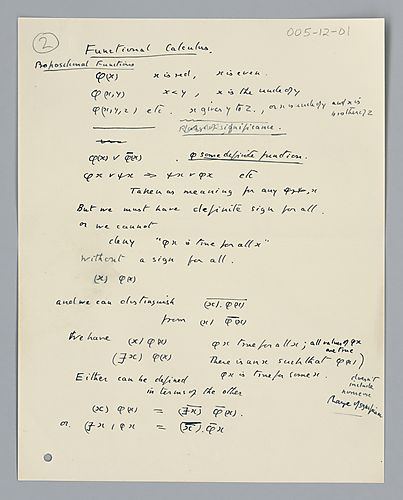 005-12-01
2
Functional Calculus.
Propositional Functions
φ(x) x is red, x is even.
φ(x,y) x < y, x is the uncle of y
φ(x,y,z) etc. x gives y to z, or x is uncle of y and x is brother of z
Range of significance.
φ(x) ∨ φ̅(̅x̅)̅ . φ some definite function.
φx ∨ ψx ≡ ψx ∨ φx etc
Taken as meaning for any φ, ψ, x
But we must have definite sign for all.
or we cannot
deny "φx is true for all x"
without a sign for all.
(x) φ(x)
and we can distinguish (̅x̅)̅.̅ ̅φ̅(̅x̅)̅
from (x) φ̅(̅x̅)̅
We have (x) φ(x) φx true for all x; all values of φx are true
(∃x) φ(x) There is an x such that φ(x)
φx is true for some x.
Either can be defined
in terms of the other
doesn't include
Range of significance
(x) φ(x) = (̅∃̅x̅)̅ φ̅(̅x̅)̅.
or (∃x) φx = (̅x̅)̅. φ̅x̅